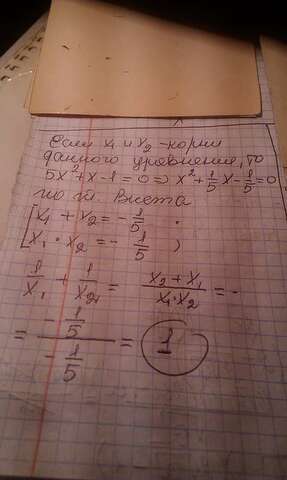 Если x₁ и x₂ - корни
данного уравнения, то
5x² + x - 1 = 0 => x² + 1/5 x - 1/5 = 0
по т. Виета
[ x₁ + x₂ = - 1/5
[ x₁ · x₂ = - 1/5 ;
1/x₁ + 1/x₂ = (x₂ + x₁)/(x₁·x₂) = -
= (- 1/5)/(- 1/5) = 1